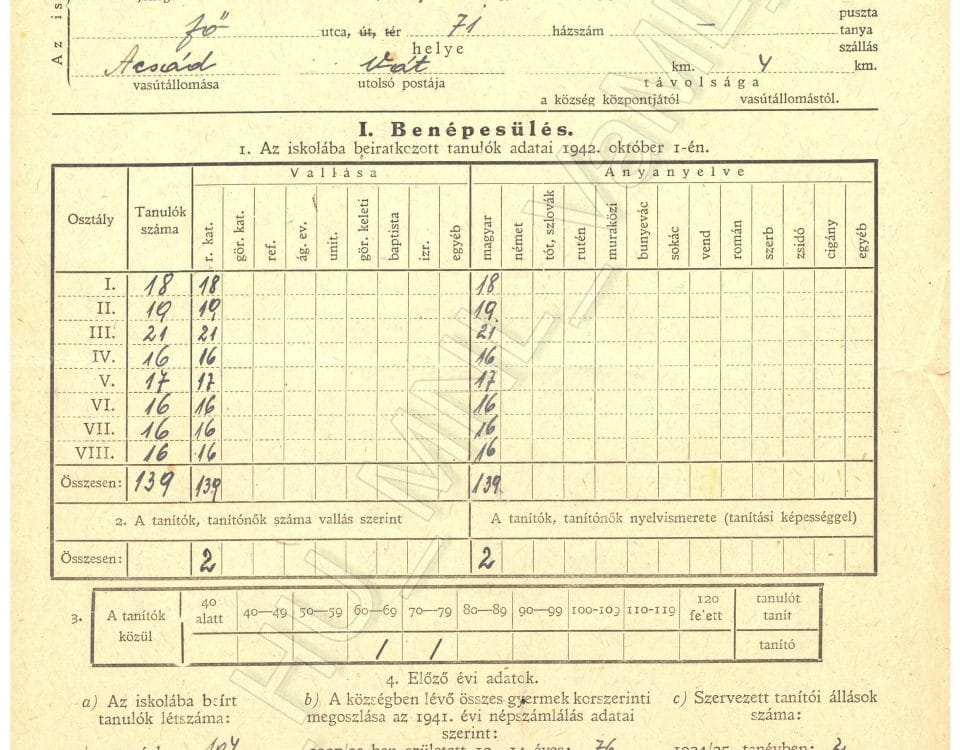 Az is
puszta
fő utca, út, tér 71 házszám – tanya
helye szállás
Acsád Vát km. 4 km.
vasútállomása utolsó postája távolsága
a község központjától vasútállomástól.
I. Benépesülés.
1. Az iskolába beiratkozott tanulók adatai 1942. október 1-én.
Osztály Tanulók száma Vallása Anyanyelve
r. kat. gör. kat. ref. ág. ev. unit. gör. keleti baptista izr. egyéb magyar német tót, szlovák rutén muraközi bunyevác sokác vend román szerb zsidó cigány egyéb
I. 18 18 18
II. 19 19 19
III. 21 21 21
IV. 16 16 16
V. 17 17 17
VI. 16 16 16
VII. 16 16 16
VIII. 16 16 16
Összesen: 139 139 139
2. A tanítók, tanítónők száma vallás szerint A tanítók, tanítónők nyelvismerete (tanítási képességgel)
Összesen: 2 2
3. A tanítók közül 40 alatt 40—49 50—59 60—69 70—79 80—89 90—99 100-109 110-119 120 felett tanulót tanít
1 1 tanító
4. Előző évi adatok.
a) Az iskolába beírt b) A községben lévő összes gyermek korszerinti c) Szervezett tanítói állások
tanulók létszáma: megoszlása az 1941. évi népszámlálás adatai száma:
szerint:
HU_MNL_VaML